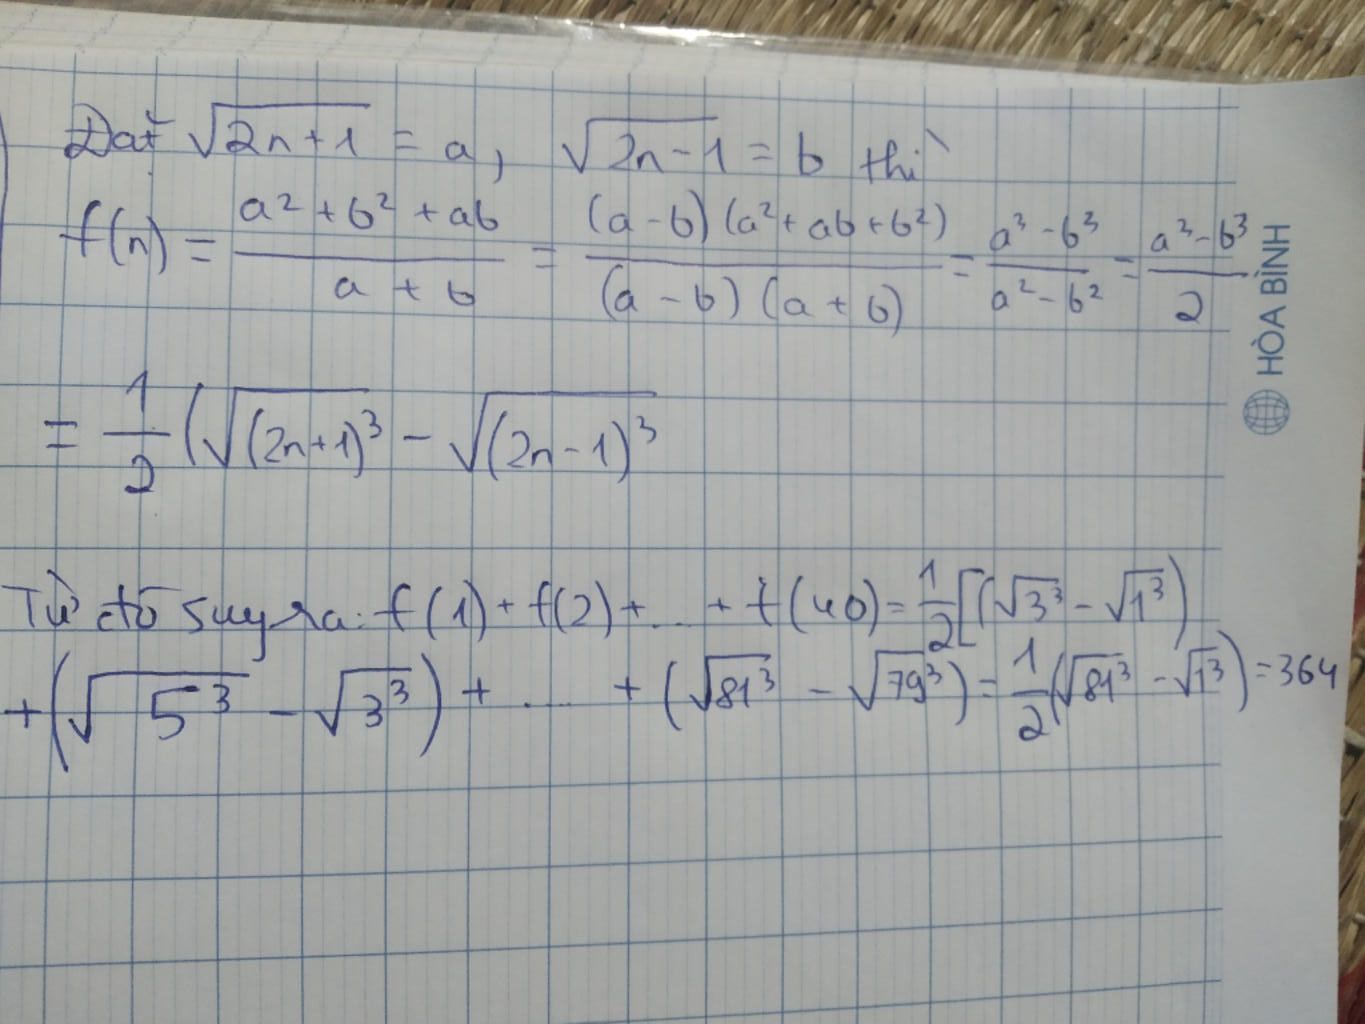 Đặt √(2n+1) = a, √(2n-1) = b thì
f(n) = (a² + b² + ab)/(a + b) = ((a - b)(a² + ab + b²))/((a - b)(a + b)) = (a³ - b³)/(a² - b²) = (a³ - b³)/2
= 1/2 (√(2n+1)³ - √(2n-1)³
Từ đó suy ra: f(1) + f(2) + ... + f(40) = 1/2 [(√3³ - √1³)
+ (√5³ - √3³) + .... + (√81³ - √79³) = 1/2 (√81³ - √1³) = 364
HÒA BÌNH